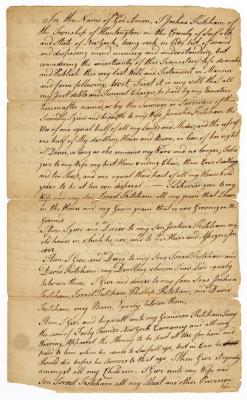 In the Name of God Amen, I Joshua Ketcham of
the Township of Huntington in the County of Suffolk
and State of New York, being sick in body but of sound
and disposing mind memory and understanding, but
considering the uncertainty of this Transitory life do make
and Publish this my last Will and Testament in Manner
and form following, to wit, First it is my will that all
my just debts and funeral Charges be paid by my Executors
hereinafter named, or by the Survivor or Survivors of them
Secondly I give and bequeath to my Wife, Jemima Ketcham the
Use of one equal half of all my Lands and the use of
one half of my dwelling House and Barn, in lieu of her right
of Dower, as long as she remains my Widow and no longer, I also
give to my Wife my best Horse & riding Chair, three Cows
and ten Sheep, and one equal third part of all my household
goods to be at her own disposal Likewise I give to my
Wife and my Son Israel Ketcham all my grain that I have
in the House and my Green grain that is now Growing on the
Ground
Item I Give and Devise to my Son Joshua Ketcham, my
old house in which he now lives and to his Heirs and Assigns for
ever
Item I Give and Devise to my Sons Israel Ketcham and
David Ketcham, my Dwelling wherein I now Live equally
between them, I Give and devise to my Sons Joshua
Ketcham, Israel Ketcham, Ketcham, and David
Ketcham, my Barn, equally between them,
Item I Give and bequeath unto my Grandson
the sum of Forty Pounds New York Currency and all my
wearing Apparel the Money to be put at Use for him and
paid to him when he comes to Lawful age, but in Case he should
die before he arrives to that age, Then I Give it equally
amongst all my Children I Give unto my Wife and
Son Israel Ketcham all my Meat and other Provision